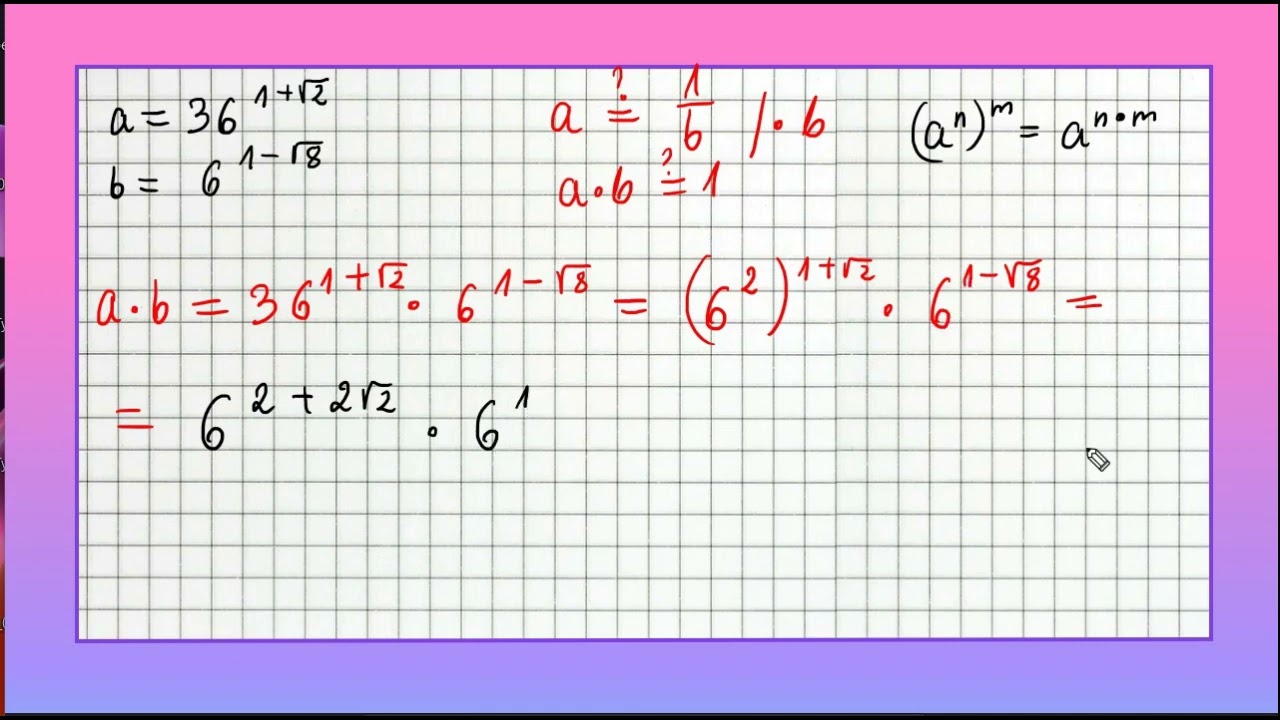 a = 36^(1+√2)
b = 6^(1-√8)
a ?= 1/b /·b
a·b ?= 1
(a^n)^m = a^(n·m)
a·b = 36^(1+√2) · 6^(1-√8) = (6^2)^(1+√2) · 6^(1-√8) =
= 6^(2+2√2) · 6^1